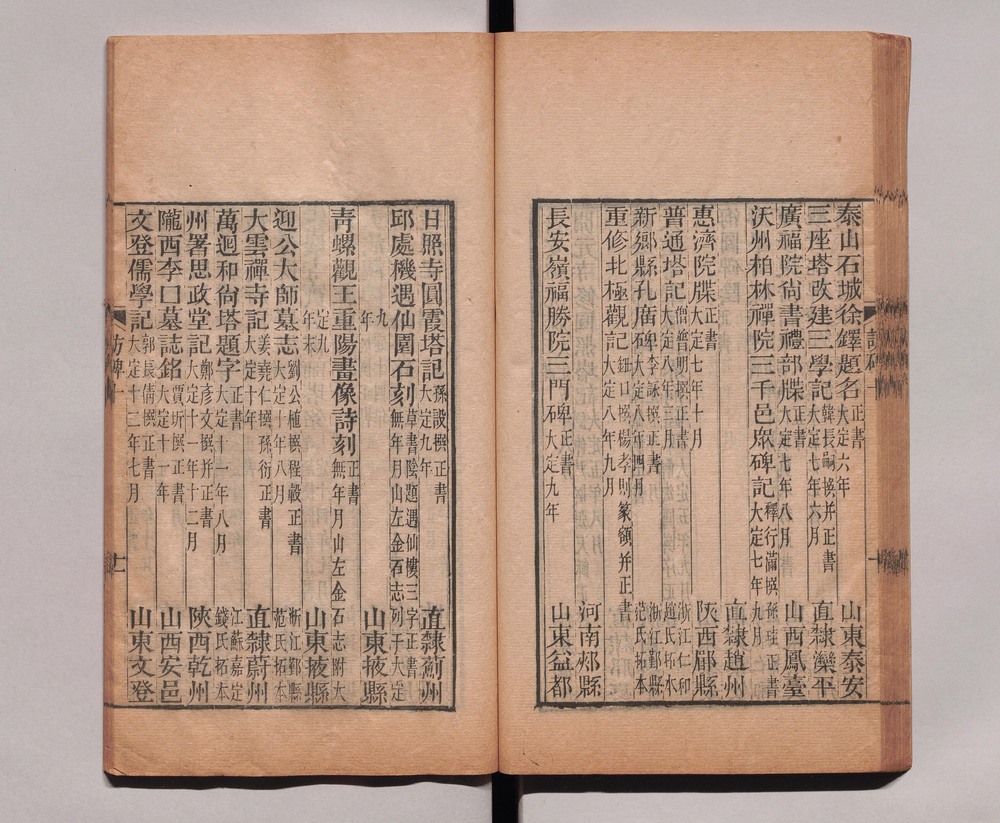 泰山石城徐鐸題名 正書 大定六年 山東泰安
三座塔改建三學記 韓長嗣撰并正書 大定七年六月 直隸灤平
廣福院尙書禮部牒 正書 大定七年八月 山西鳳臺
沃州柏林禪院三千邑眾碑記 釋行滿撰 孫珪正書 大定七年九月 直隸趙州
惠濟院牒 正書 大定七年十月 陝西鄜縣
普通塔記 僧普明撰正書 大定八年三月 浙江仁和趙氏拓本
新鄉縣孔廟碑 李詠撰正書 大定八年月 浙江鄞縣范氏拓本
重修北極觀記 鈕口楊孝則篆額并正書 大定八年九月 河南郟縣
長安嶺福勝院三門碑 正書 大定九年 山東益都
日照寺圓霞塔記 孫設撰正書 大定九年 直隸薊州
邱處機遇仙園石刻 草書陰題遇仙樓三字正書 無年月山左金石志列于大定九年 山東掖縣
青螺觀王重陽畫像詩刻 正書 無年月山左金石志附大定九年末 山東掖縣
迎公大師墓志 劉公植撰程轂正書 大定十年八月 浙江鄞縣范氏拓本
大雲禪寺記 姜堯仁撰孫衍正書 大定十年 直隸蔚州
萬迴和尙塔題字 正書 大定十一年八月 江蘇嘉定錢氏拓本
州署思政堂記 鄭彥文撰并正書 大定十一年十二月 陝西乾州
隴西李口墓誌銘 賈圻撰正書 大定十一年 山西安邑
文登儒學記 郭長倩撰正書 大定十三年七月 山東文登